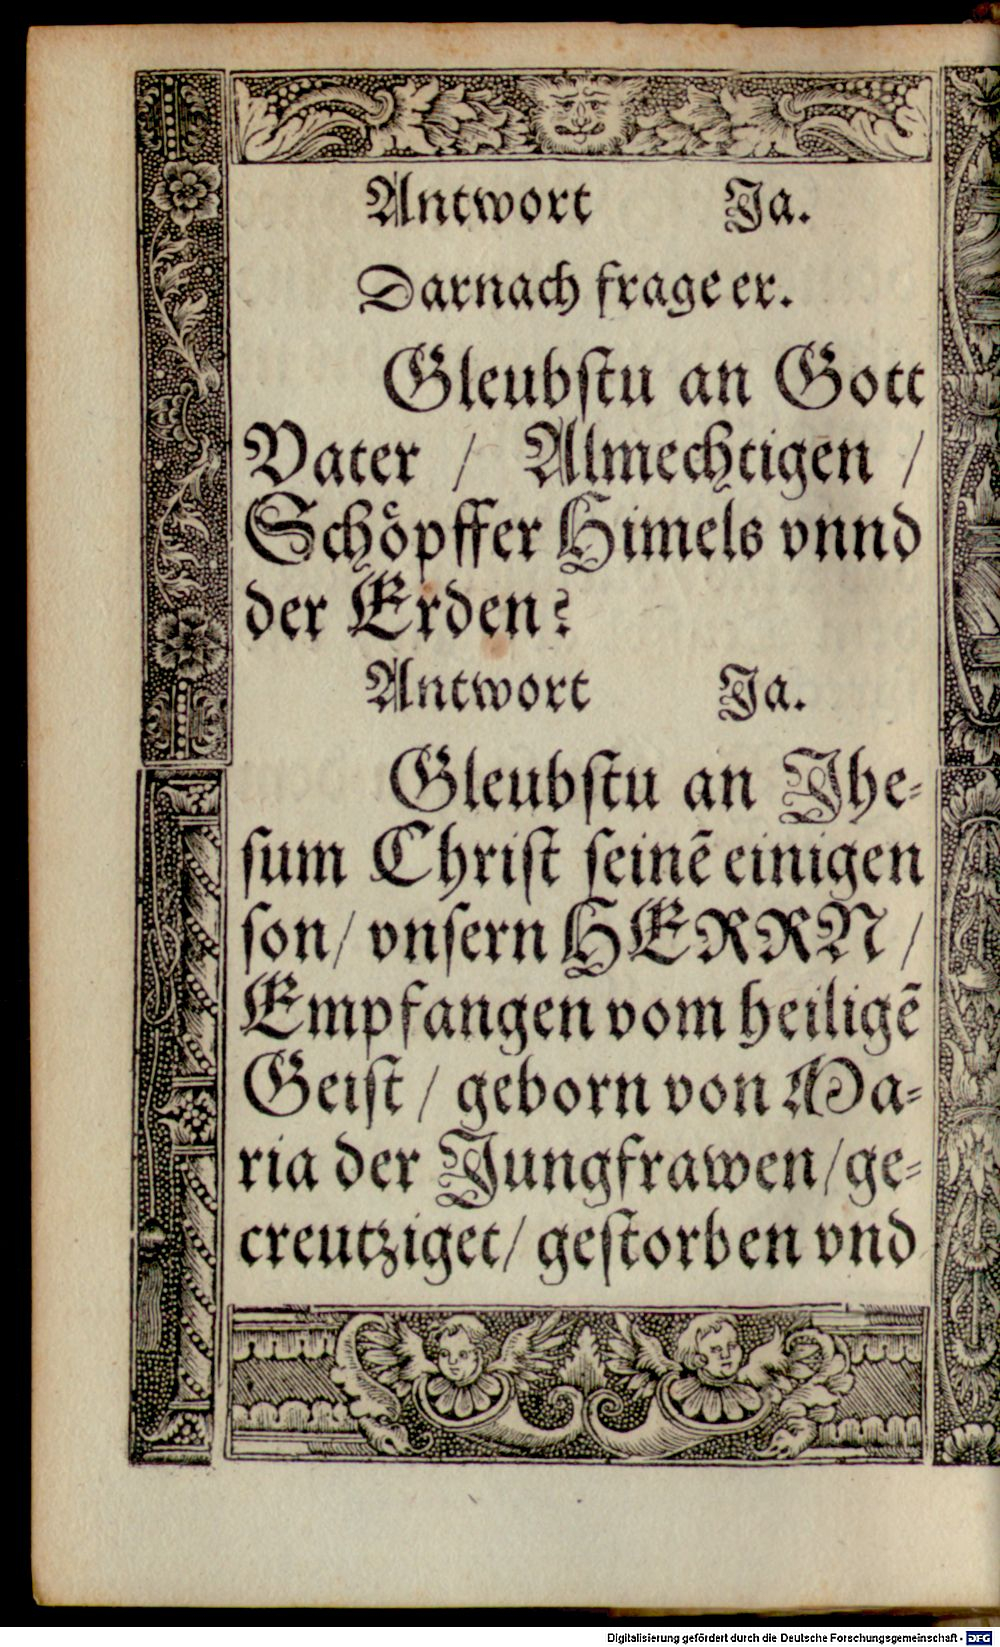 Antwort Ja.
Darnach frage er.
Gleubſtu an Gott
Vater / Almechtigen /
Schoͤpffer Himels vnnd
der Erden?
Antwort Ja.
Gleubſtu an Jhe⸗
ſum Chriſt ſeinē einigen
ſon/ vnſern HERRN /
Empfangen vom heiligē
Geiſt / geborn von Ma⸗
ria der Jungfrawen/ ge⸗
creutziget/ geſtorben vnd
Digitalisierung gefördert durch die Deutsche Forschungsgemeinschaft - DFG